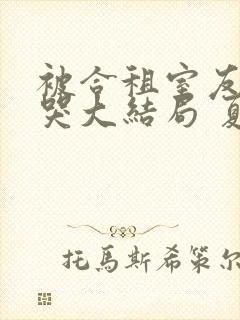 被合租室友
哭大結局 夏
托馬斯希策尔